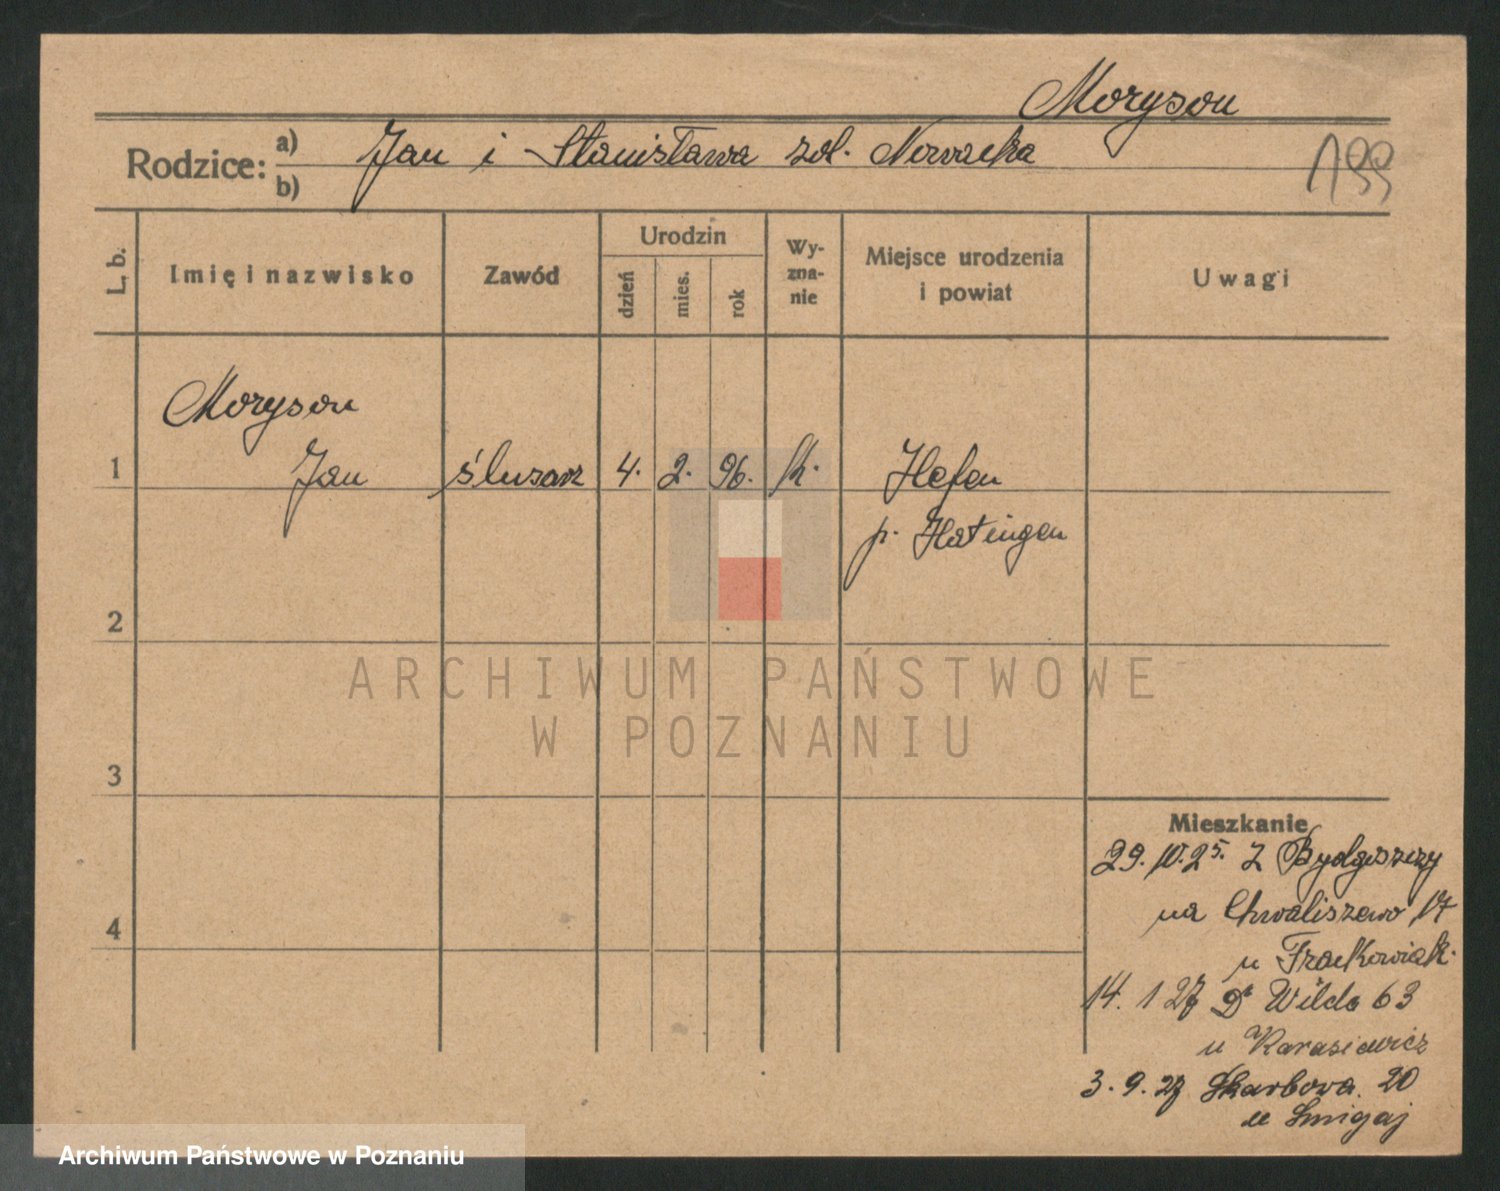 Moryson
Rodzice: a) Jan i Stanisława zd. Nowacka
b)
199
L. b.
Imię i nazwisko
Zawód
Urodzin
dzień
mies.
rok
Wy-
zna-
nie
Miejsce urodzenia
i powiat
Uwagi
Moryson
1 Jan ślusarz 4. 2. 96. k. Hefen
p. Hatingen
2
ARCHIWUM PAŃSTWOWE
W POZNANIU
3
Mieszkanie
29. 10. 25. z Bydgoszczy
na Chwaliszewo 17
u Frąckowiak.
4
14. 1 27 Wilda 63
u Karasiewicz
3. 9. 27 Skarbowa 20
u Smigaj
Archiwum Państwowe w Poznaniu